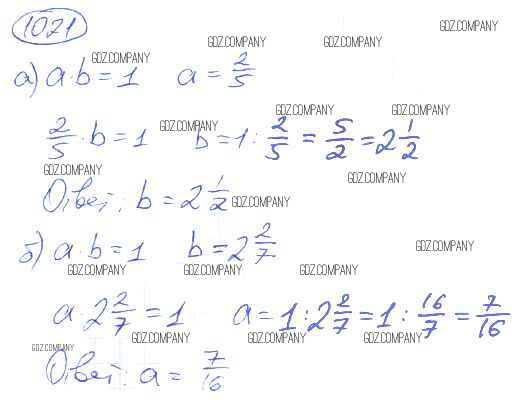 1071
GDZ.COMPANY GDZ.COMPANY GDZ.COMPANY GDZ.COMPANY
а) a · b = 1 a = 2/5
GDZ.COMPANY GDZ.COMPANY GDZ.COMPANY
2/5 · b = 1 b = 1 : 2/5 = 5/2 = 2 1/2
GDZ.COMPANY GDZ.COMPANY
Ответ: b = 2 1/2 GDZ.COMPANY
б) a · b = 1 b = 2 2/7 GDZ.COMPANY
GDZ.COMPANY GDZ.COMPANY GDZ.COMPANY
a · 2 2/7 = 1 a = 1 : 2 2/7 = 1 : 16/7 = 7/16
GDZ.COMPANY GDZ.COMPANY GDZ.COMPANY GDZ.COMPANY
Ответ: a = 7/16